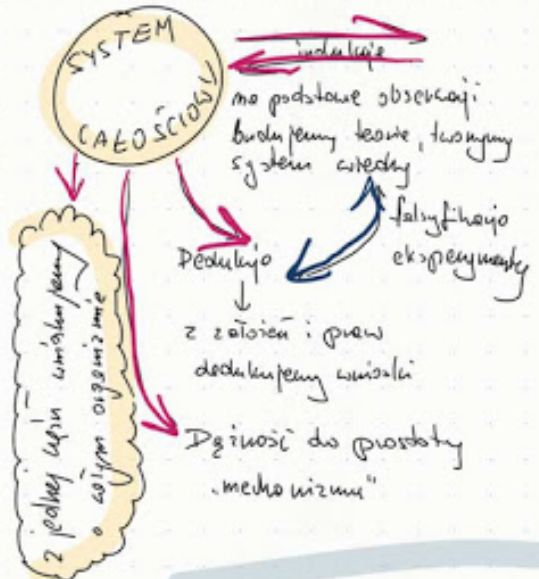 SYSTEM
CAŁOŚCIOWY
indukcje
na podstawie obserwacji
budujemy teorie, tworzymy
system wiedzy
falsyfikacja
eksperymenty
Dedukcja
z założeń i praw
dedukujemy wnioski
Dążność do prostoty
"mechanizmu"
z jednej części wnioskujemy
o całym organizmie